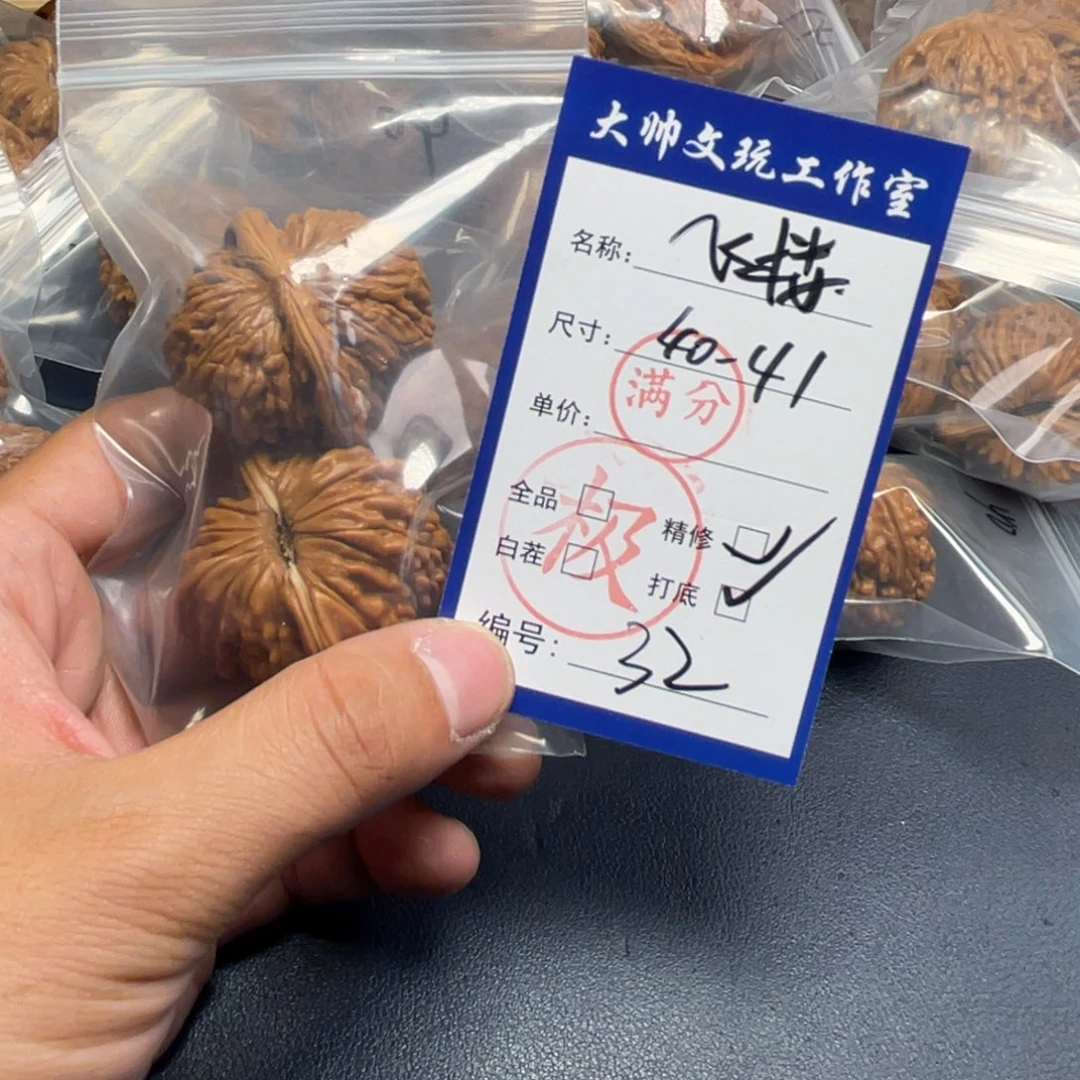 大帅文玩工作室
名称: 飞楼
尺寸: 40-41
满分
单价:
极
全品 精修
白茬 打底
编号: 32